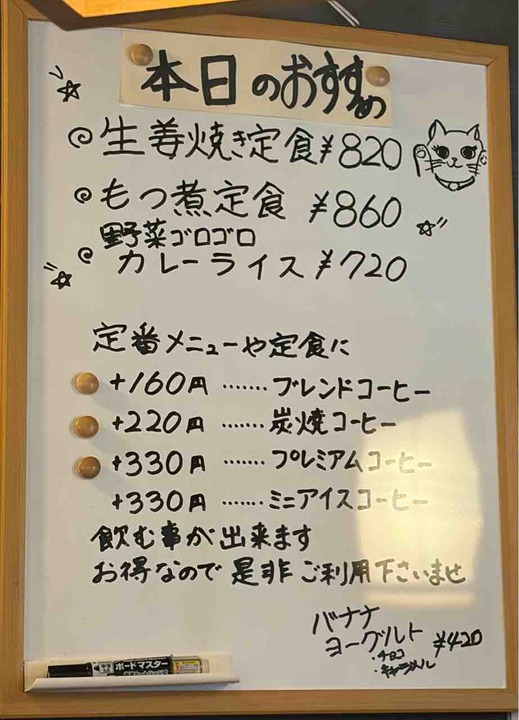 本日のおすすめ
生姜焼き定食 ¥820
もつ煮定食 ¥860
野菜ゴロゴロ
カレーライス ¥720
定番メニューや定食に
+160円 ……. ブレンドコーヒー
+220円 ……. 炭焼コーヒー
+330円 ……. プレミアムコーヒー
+330円 ……. ミニアイスコーヒー
飲む事が出来ます
お得なので 是非 ご利用下さいませ
バナナ
ヨーグルト ¥420
・チョコ
・キャラメル
ボードマスター